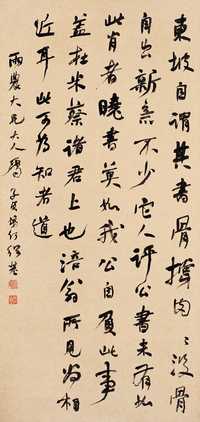 東坡自謂其書骨撐肉々沒骨
自出新意不少它人評公書未有如
此肖者曉書莫如我公自負此事
蓋在米蔡諸君上也涪翁所見為相
近耳此可為知者道
雨農大兄大人屬 子貞何紹基